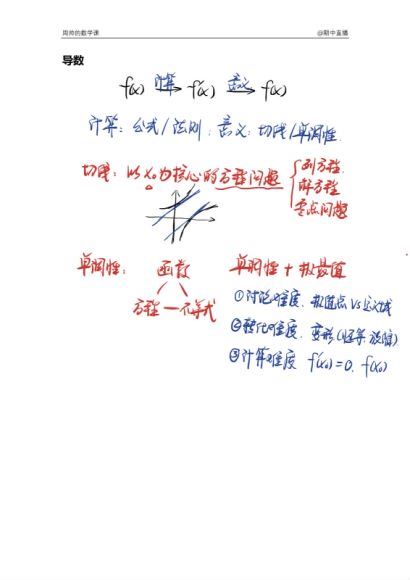 周帅的数学课 @期中直播
导数
f(x) 计算→ f'(x) 意义→ f(x)
计算：公式/法则；意义：切线/单调性
切线：以x₀为核心的方程问题 { 列方程
解方程
零点问题
单调性： 函数 单调性+极最值
方程—不等式
①讨论难度、极值点 vs 定义域
②转化难度、变形(恒等、放缩)
③计算难度 f'(x₀)=0、f(x₀)